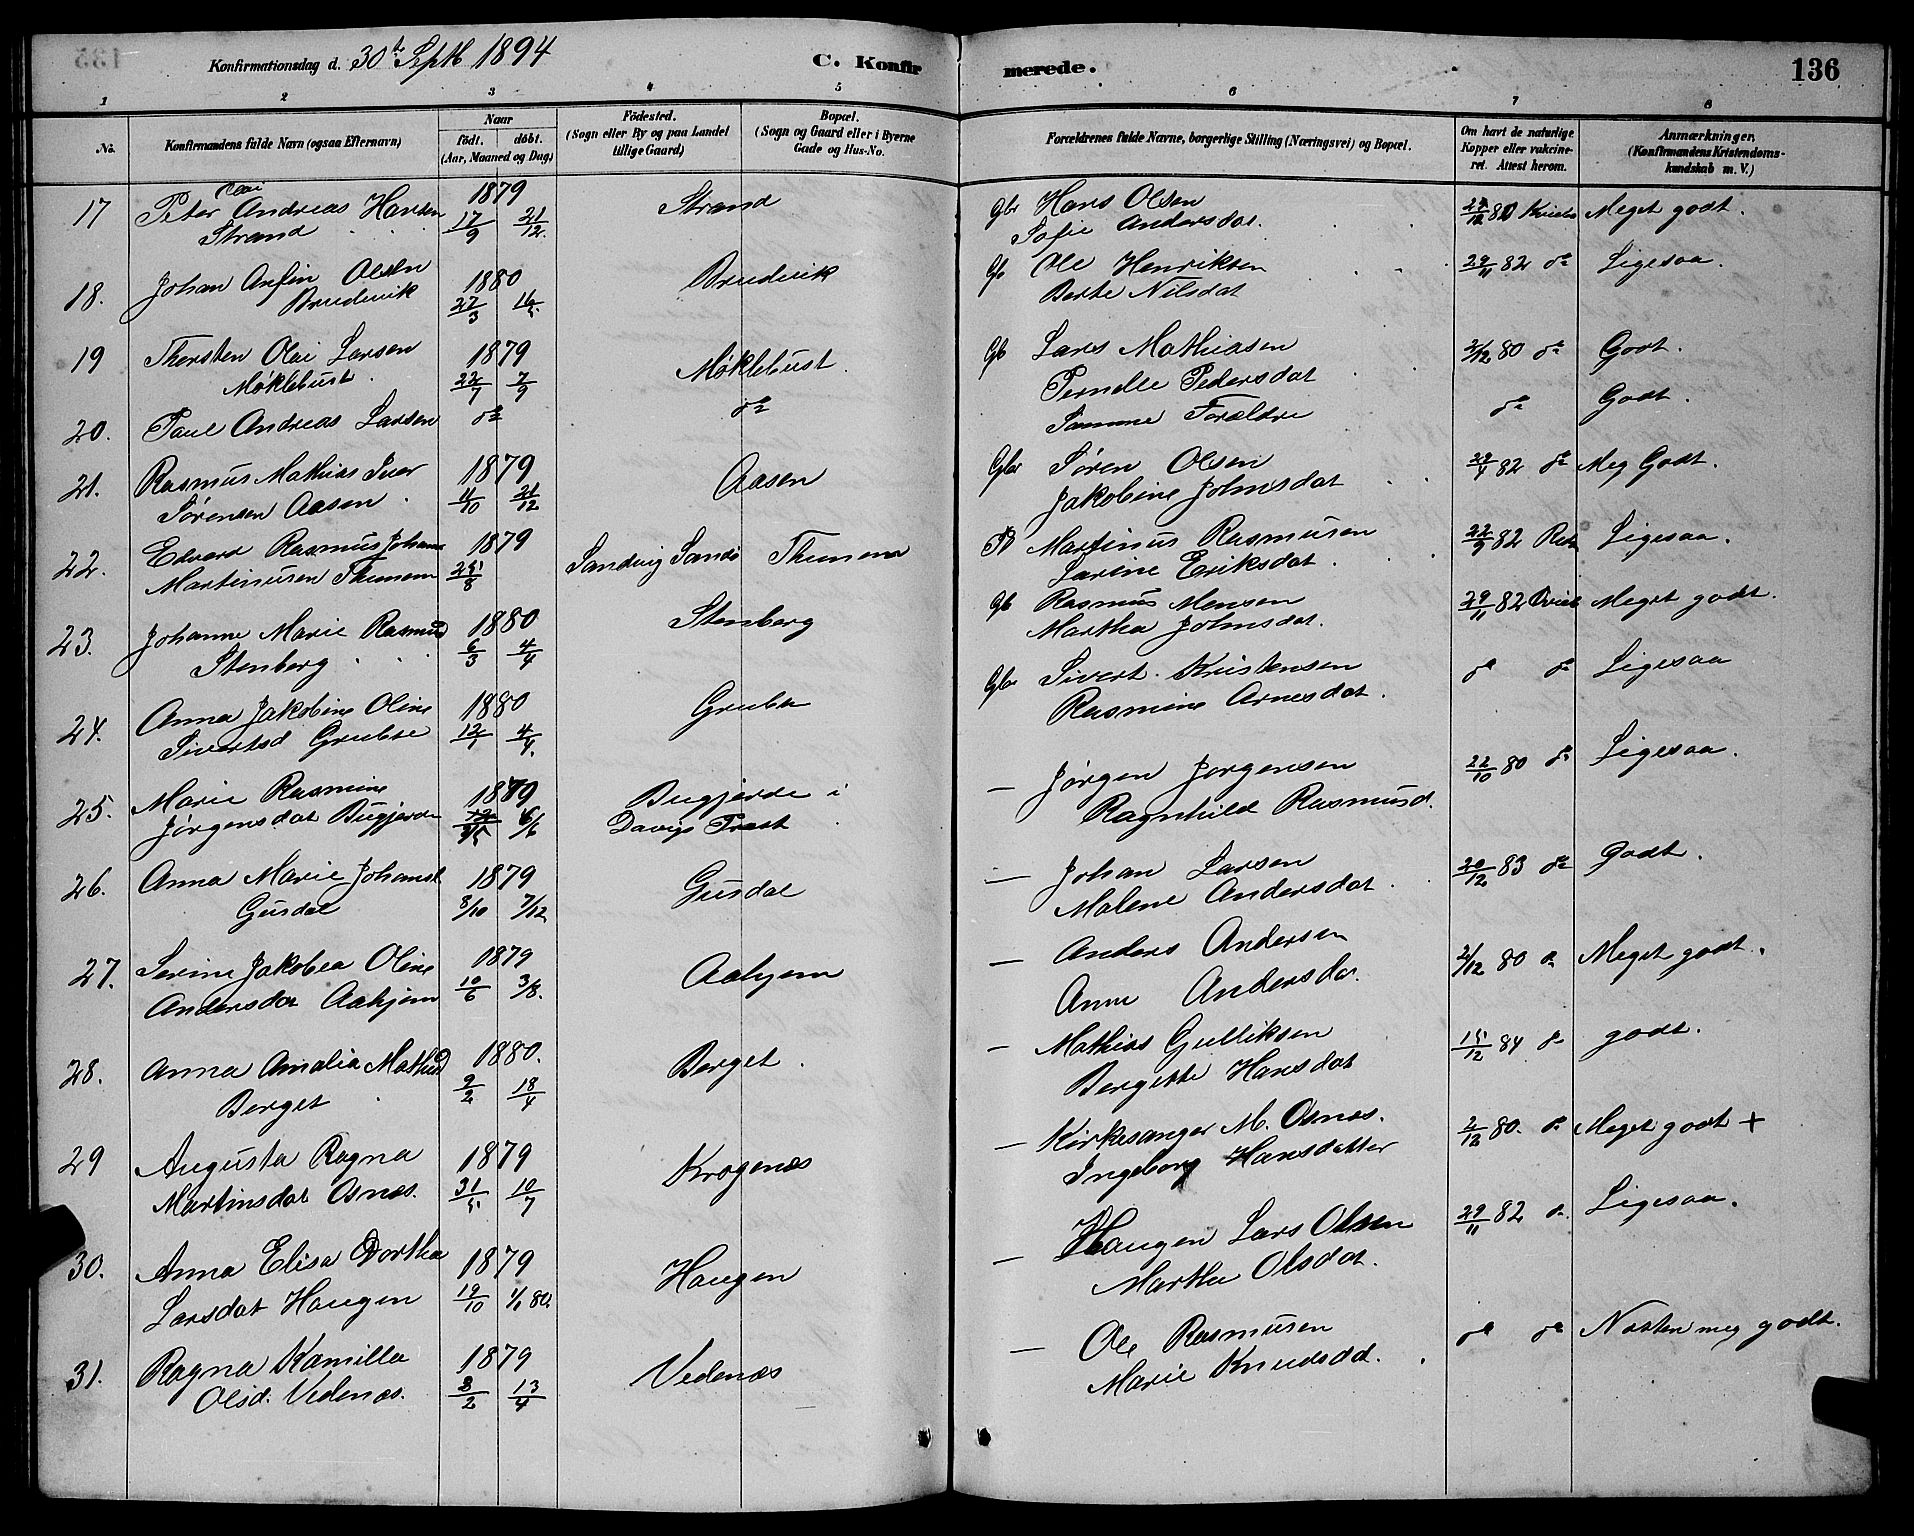 135
Konfirmationsdag d. 30te Septb 1894
C. Konfirmerede.
136
1 2 3 4 5 6 7 8
No.
Konfirmandens fulde Navn (ogsaa Efternavn)
Naar
født. døbt.
(Aar, Maaned og Dag)
Fødested.
(Sogn eller By og paa Landet
tillige Gaard)
Bopæl.
(Sogn og Gaard eller i Byerne
Gade og Hus-No.
Forældrenes fulde Navne, borgerlige Stilling (Næringsvei) og Bopæl.
Om havt de naturlige
Kopper eller vakcine-
ret. Attest herom.
Anmærkninger,
(Konfirmandens Kristendoms-
kundskab m. V.)
Olai
17 Peter Andreas Hansen 1879 Strand Gbr Hans Olsen 80 Meget godt.
Strand 17/9 21/12 Sofie Andersdat.
18. Johan Anfin Olsen 1880 Brudevik Gb Ole Henriksen 29/11 82 do Ligesaa.
Brudevik 27/3 16/5 Berte Nilsdat
19 Thorsten Olai Larsen 1879 Møklebust. Gb Lars Mathiasen 2/12 80 do Godt.
Møklebust. 22/7 7/9 Pernelle Pedersdat
20. Paul Andreas Larsen do do Samme Forældre do Godt.
21. Rasmus Mathias Iver 1879 Aasen Gbr Søren Olsen 29/4 82 do Meg Godt.
Sørensen Aasen. 11/10 21/12 Jakobine Johnsdat
22. Edvard Rasmus Johann 1879 Sandvig Sande Thunem Martinus Rasmusen 22/9 82 Ligesaa.
Martinusen Thunem 25/8 Larine Eriksdat.
23. Johanne Marie Rasmusd 1880 Stenberg Gb Rasmus Monsen 29/11 82 Meget godt.
Stenberg 6/3 4/4 Martha Johnsdat.
24. Anna Jakobine Oline 1880 Grubse Gbr Sivert Kristensen do do Ligesaa
Sivertsd Grubse 12/1 4/4. Rasmine Arnesdat.
25. Marie Rasmine 1879 Bugjerde i — Jørgen Jørgensen 22/10 80 do Ligesaa.
Jørgensdat Bugjerde 6/6 Davigs Præst Ragnhild Rasmusd.
26. Anna Marie Johansd 1879 Gusdal — Johan Larsen 20/12 83 do Godt.
Gusdal 8/10 7/12 Malene Andersdat.
27. Serine Jakobea Oline 1879 Aahjem — Anders Andersen 2/12 80 do Meget godt.
Andersdat Aahjem 10/6 3/8. Anne Andersda.
28. Anna Amalia Mathisd 1880. Berget. — Mathias Gulliksen 15/12 84 do godt.
Berget 9/2 18/4 Bergitte Hansdat
29 Augusta Ragna 1879 Krogenæs — Kirkesanger M. Osnæs. 2/12 80. do Meget godt +
Martinsdat Osnæs. 31/5 10/7 Ingeborg Hansdatter
30. Anna Elisa Dorthea 1879 Haugen — Haugen Lars Olsen 29/11 82 do Ligesaa.
Larsdat Haugen 19/10 1/1 80. Martha Olsdat.
31. Ragna Kamilla 1879 Vedenæs — Ole Rasmusen do do Næsten meg godt.
Olsd. Vedenæs. 3/2 13/4 Marie Knudsdd.